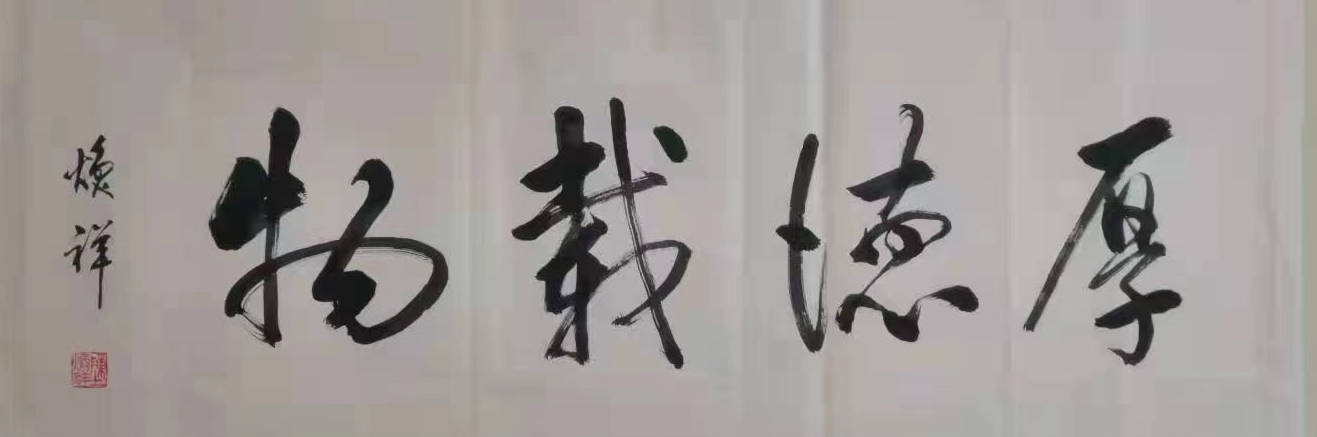 厚德载物
焕祥